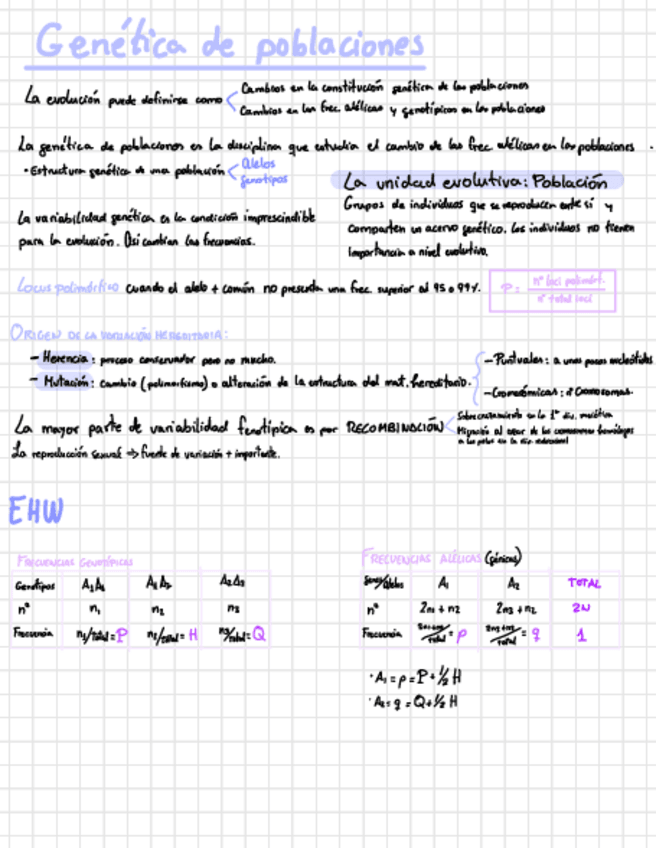 Genética de poblaciones
La evolución puede definirse como
Cambios en la constitución genética de las poblaciones
Cambios en las frec. alélicas y genotípicas en las poblaciones
La genética de poblaciones es la disciplina que estudia el cambio de las frec. alélicas en las poblaciones.
· Estructura genética de una población
alelos
genotipos
La unidad evolutiva: Población
Grupos de individuos que se reproducen entre sí y
comparten un acervo genético. Los individuos no tienen
importancia a nivel evolutivo.
La variabilidad genética es la condición imprescindible
para la evolución. Así cambian las frecuencias.
Locus polimórfico cuando el alelo + común no presenta una frec. superior al 95 o 99%.
P = nº loci polimórf. / nº total loci
ORIGEN DE LA VARIACIÓN HEREDITARIA:
- Herencia: proceso conservador pero no mucho.
- Mutación: cambio (polimorfismo) o alteración de la estructura del mat. hereditario.
- Puntuales: a unos pocos nucleótidos
- Cromosómicas: nº cromosomas.
La mayor parte de variabilidad fenotípica es por RECOMBINACIÓN
Sobrecruzamiento en la 1ª div. meiótica
Migración al azar de los cromosomas homólogos
a los polos en la div. reduccional
La reproducción sexual => fuente de variación + importante.
EHW
FRECUENCIAS GENOTÍPICAS
Genotipos A₁A₁ A₁A₂ A₂A₂
nº n₁ n₂ n₃
Frecuencia n₁/total = P n₂/total = H n₃/total = Q
FRECUENCIAS ALÉLICAS (génicas)
Genes/Alelos A₁ A₂ TOTAL
nº 2n₁ + n₂ 2n₃ + n₂ 2N
Frecuencia 2n₁+n₂/total = p 2n₃+n₂/total = q 1
· A₁ = p = P + ½ H
· A₂ = q = Q + ½ H